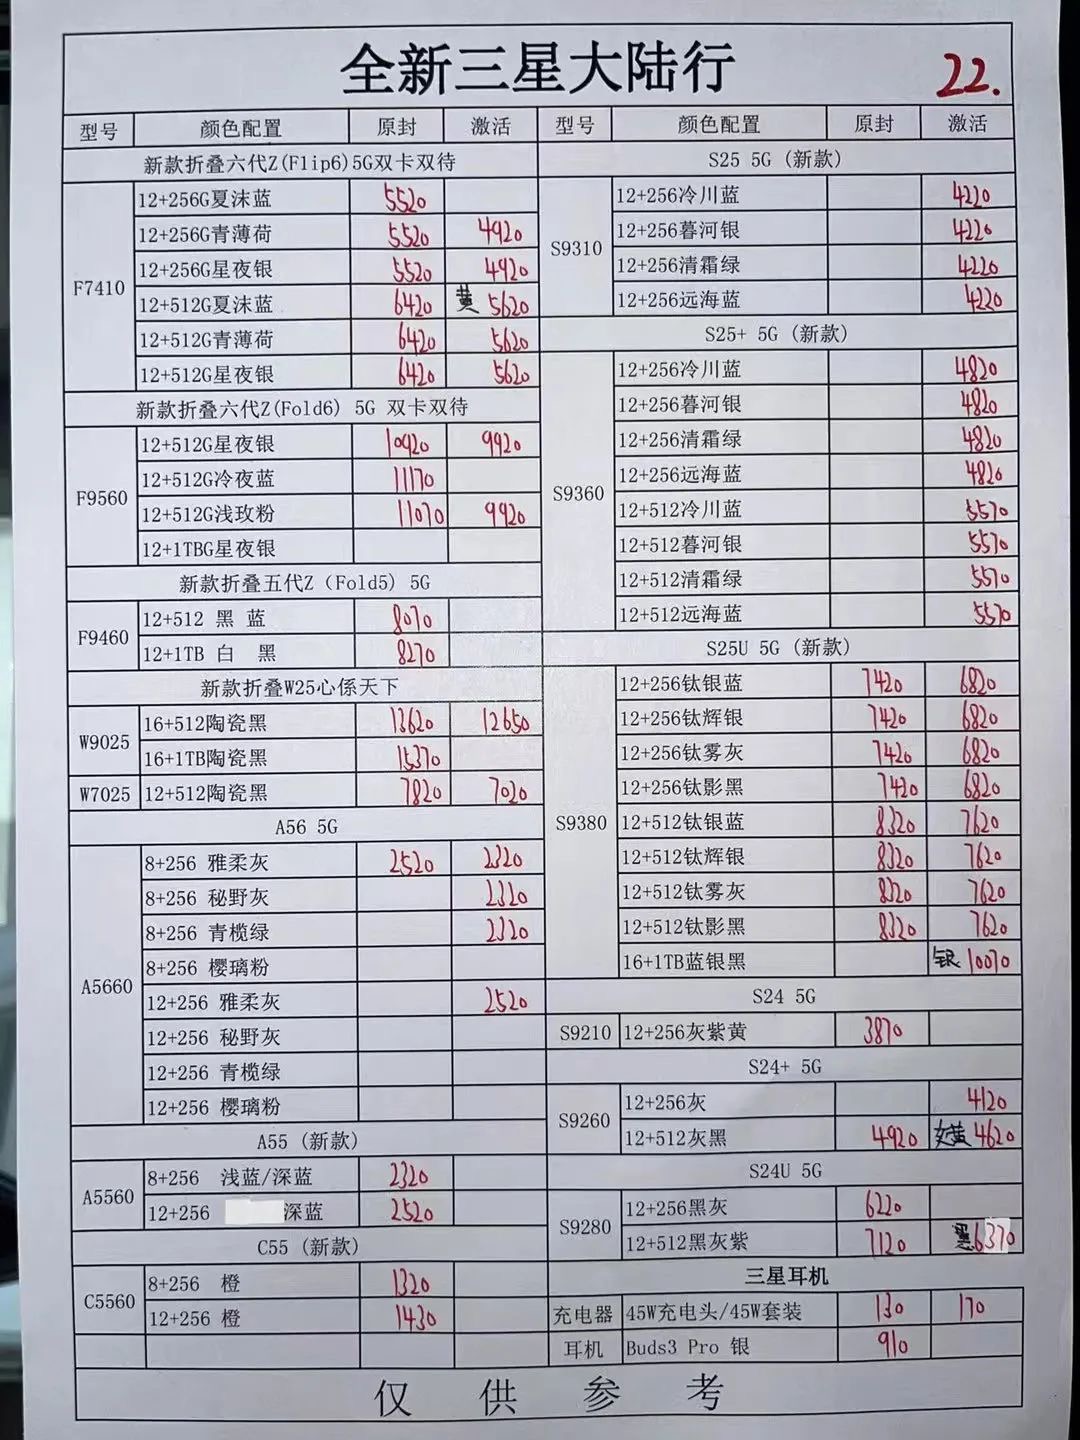 全新三星大陆行
22.
型号 颜色配置 原封 激活
新款折叠六代Z(Flip6)5G双卡双待
F7410
12+256G夏沫蓝 5520
12+256G青薄荷 5520 4920
12+256G星夜银 5520 4920
12+512G夏沫蓝 6420 黄 5620
12+512G青薄荷 6420 5620
12+512G星夜银 6420 5620
新款折叠六代Z(Fold6) 5G 双卡双待
F9560
12+512G星夜银 10920 9920
12+512G冷夜蓝 11170
12+512G浅玫粉 11070 9920
12+1TBG星夜银
新款折叠五代Z（Fold5）5G
F9460
12+512 黑 蓝 8070
12+1TB 白 黑 8270
新款折叠W25心係天下
W9025
16+512陶瓷黑 13620 12650
16+1TB陶瓷黑 15370
W7025 12+512陶瓷黑 7820 7020
A56 5G
A5660
8+256 雅柔灰 2520 2320
8+256 秘野灰 2320
8+256 青榄绿 2320
8+256 樱璃粉
12+256 雅柔灰 2520
12+256 秘野灰
12+256 青榄绿
12+256 樱璃粉
A55 (新款)
A5560
8+256 浅蓝/深蓝 2320
12+256 深蓝 2520
C55 (新款)
C5560
8+256 橙 1320
12+256 橙 1430
型号 颜色配置 原封 激活
S25 5G (新款)
S9310
12+256冷川蓝 4220
12+256暮河银 4220
12+256清霜绿 4220
12+256远海蓝 4220
S25+ 5G (新款)
S9360
12+256冷川蓝 4820
12+256暮河银 4820
12+256清霜绿 4820
12+256远海蓝 4820
12+512冷川蓝 5570
12+512暮河银 5570
12+512清霜绿 5570
12+512远海蓝 5570
S25U 5G (新款)
S9380
12+256钛银蓝 7420 6820
12+256钛辉银 7420 6820
12+256钛雾灰 7420 6820
12+256钛影黑 7420 6820
12+512钛银蓝 8320 7620
12+512钛辉银 8320 7620
12+512钛雾灰 8320 7620
12+512钛影黑 8320 7620
16+1TB蓝银黑 银 10070
S24 5G
S9210 12+256灰紫黄 3870
S24+ 5G
S9260
12+256灰 4120
12+512灰黑 4920 黄 4620
S24U 5G
S9280
12+256黑灰 6220
12+512黑灰紫 7120 6370
三星耳机
充电器 45W充电头/45W套装 130 170
耳机 Buds3 Pro 银 910
仅 供 参 考